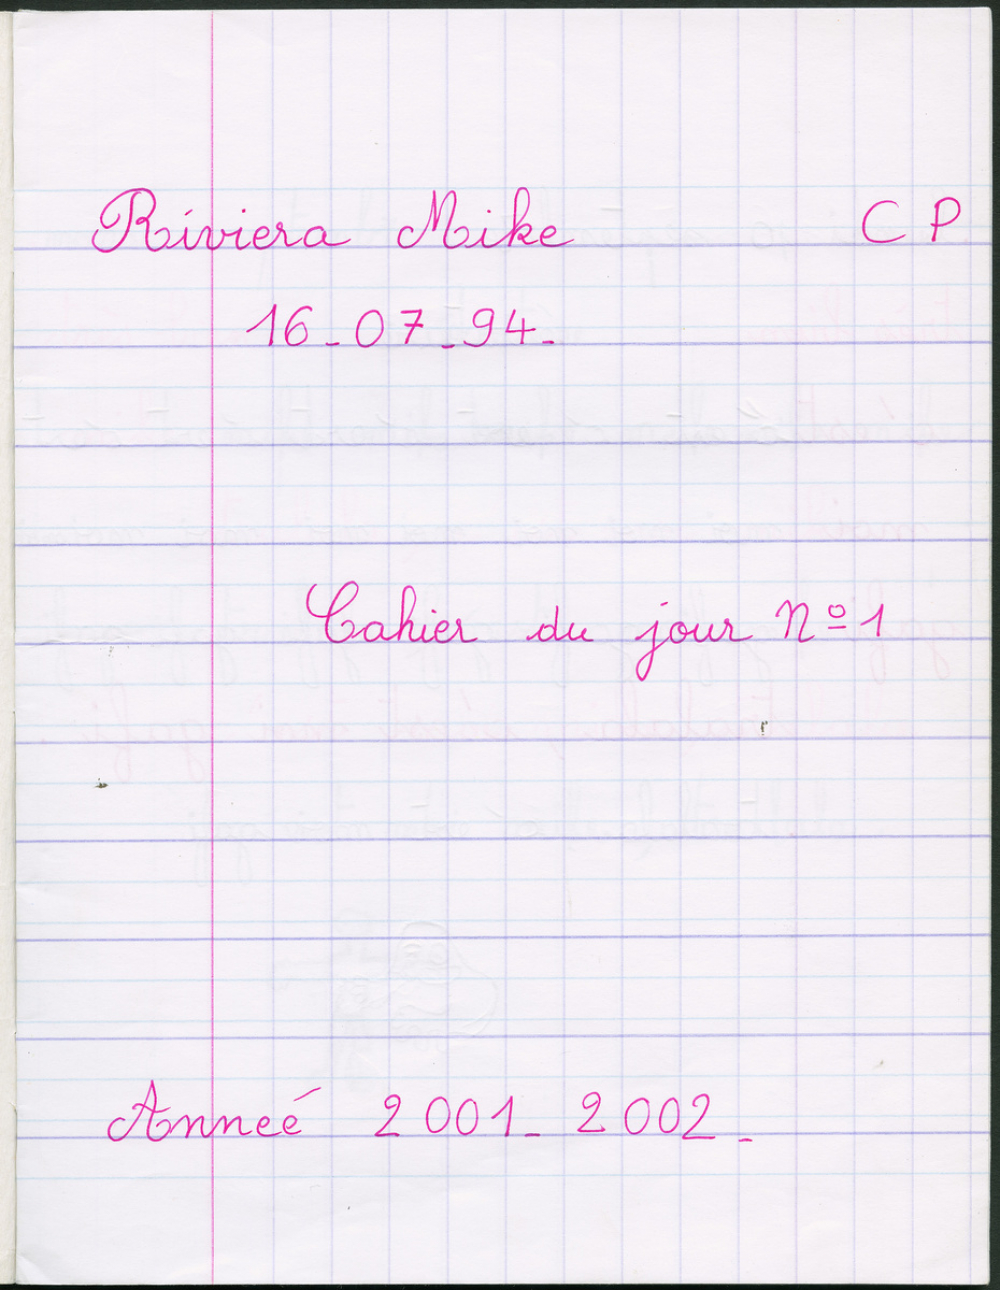 Riviera Mike CP
16-07-94-
Cahier du jour Nº1
Anneé 2001-2002-